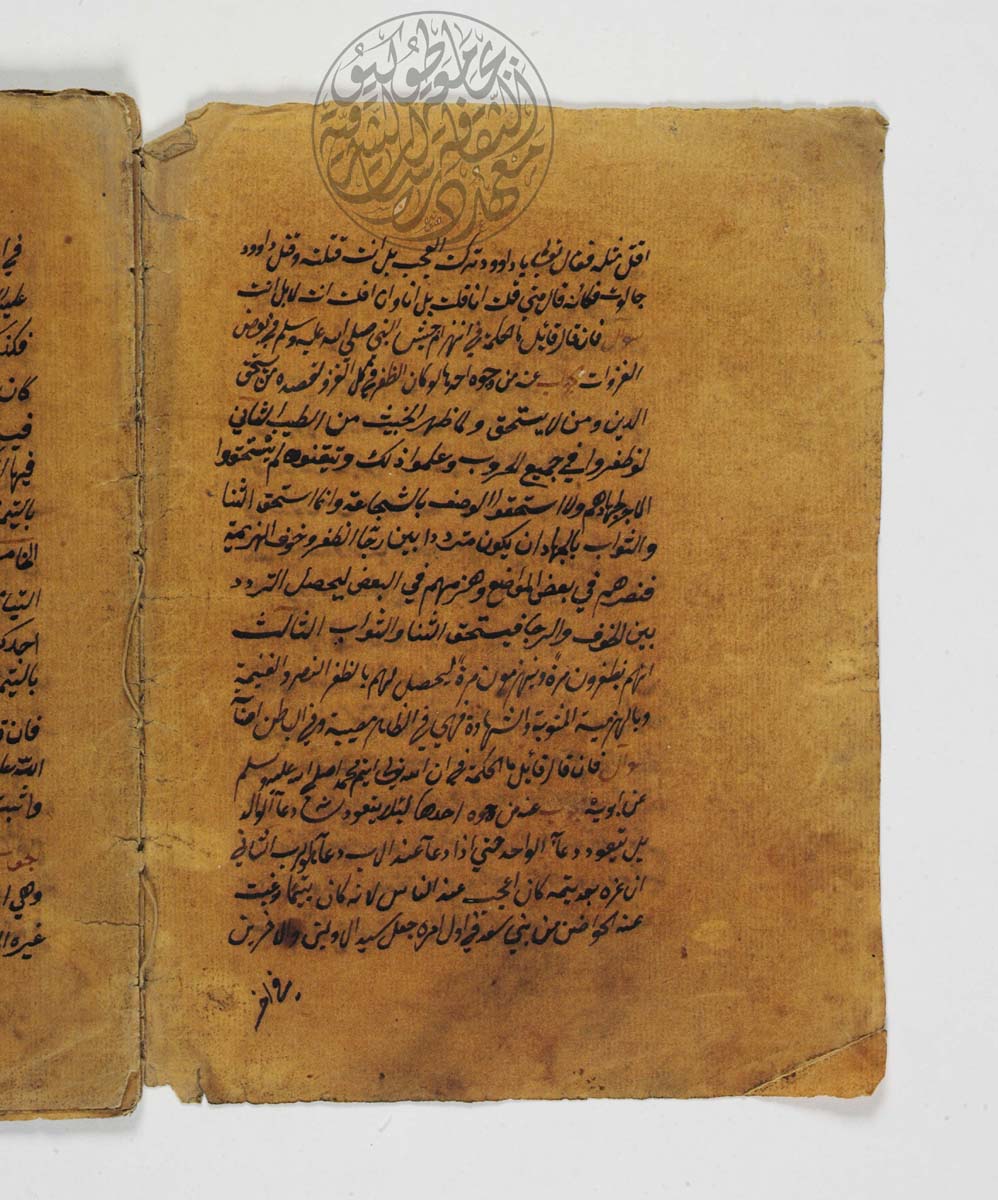 اقتل مثله فقال تعالى يا داوود تركت العجب بل انت قتلته وقتل داوود
جالوت فكانه قال مني قلت انا قلت بل انا واى اقلت انت لا بل انت
سوال فان قال قائل ما الحكمة في انهزام جيش النبي صلى الله عليه وسلم في بعض
الغزوات جواب عنه من وجوه احدها لو كان الظفر في كل الغزو لقصده من يستحق
الدين ومن لا يستحق ولما ظهر الخبيث من الطيب الثاني
لو ظفروا في جميع الحروب وعلموا ذلك وتيقنوه لم يستحقوا
الاجر لجهادهم ولا استحقوا الوصف بالشجاعة وانما استحق الثنا
والثواب بالجهاد ان يكون مترددا بين رجا الظفر وخوف الهزيمة
فنصرهم في بعض المواضع وهزمهم في البعض ليحصل التردد
بين الخوف والرجا فيستحق الثنا والثواب الثالث
انهم يظفرون مرة وينهزمون مرة ليحصل لهم بالظفر النصر والغنيمة
وبالهزيمة المثوبة والشهادة فهي في الظاهر مصيبة وفي الباطن
سوال فان قال قائل ما الحكمة في ان الله تعالى ايتم محمدا صلى الله عليه وسلم
عن ابويه جواب عنه من وجوه احدها لئلا يتعود دعآ الوالد
بل يتعود دعآ الواحد حتى اذا دعآ عند الاب دعآ الثاني
ان عزه بعد يتمه كان اعجب عند الناس لانه كان يتيما رغبت
عنه الحواضن من بني سعد في اول امره جعل سيد الاولين والاخرين
في
فان
جواب
وهي
غيره